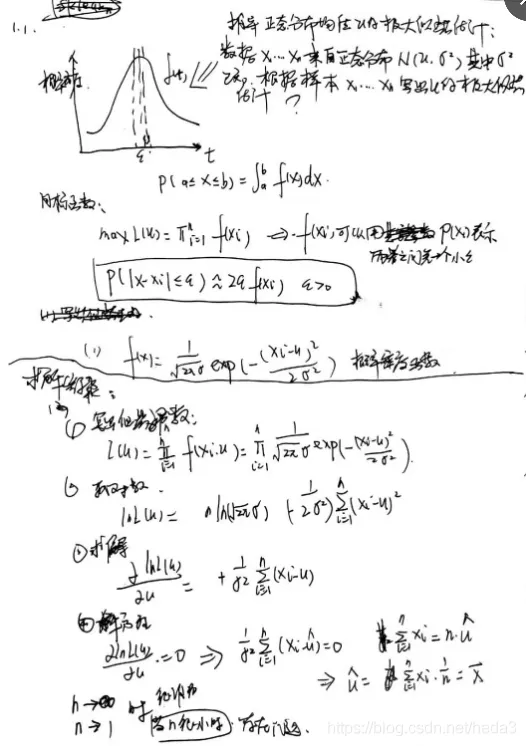 1.1.
推导正态分布均值u的极大似然估计：
数据 X1...Xn 来自正态分布 N(u, σ²) 其中σ²
已知, 根据样本 X1...Xn 写出u的极大似然
估计 ?
概率密度
f(t)
t
P(a≤X≤b)=∫_a^b f(x)dx.
目标函数：
max L(u)=∏_{i=1}^n f(xi) ⇔ f(xi)可以用 P(xi)表示
两者之间差一个小ε
P(|x-xi|≤ε)≈2ε f(xi) ε>0
(1) f(x)=1/(√2π σ) exp(-(xi-u)²/2σ²) 概率密度函数
求解
① 写出似然函数：
L(u)=∏_{i=1}^n f(xi.u)=∏_{i=1}^n 1/(√2π σ) exp(-(xi-u)²/2σ²).
取对数.
lnL(u)= n ln(√2π σ) (-1/2σ²)∑_{i=1}^n (xi-u)²
求解
∂lnL(u)/∂u = + 1/σ² ∑_{i=1}^n (xi-u)
④ 解方程
∂lnL(u)/∂u .=0 ⇒ 1/σ² ∑_{i=1}^n (xi-û)=0 ∑_{i=1}^n xi=n.û
⇒ û= ∑_{i=1}^n xi.1/n=x̄
n→∞ 时
n→1 当n很小时.存在问题.
https://blog.csdn.net/heda3